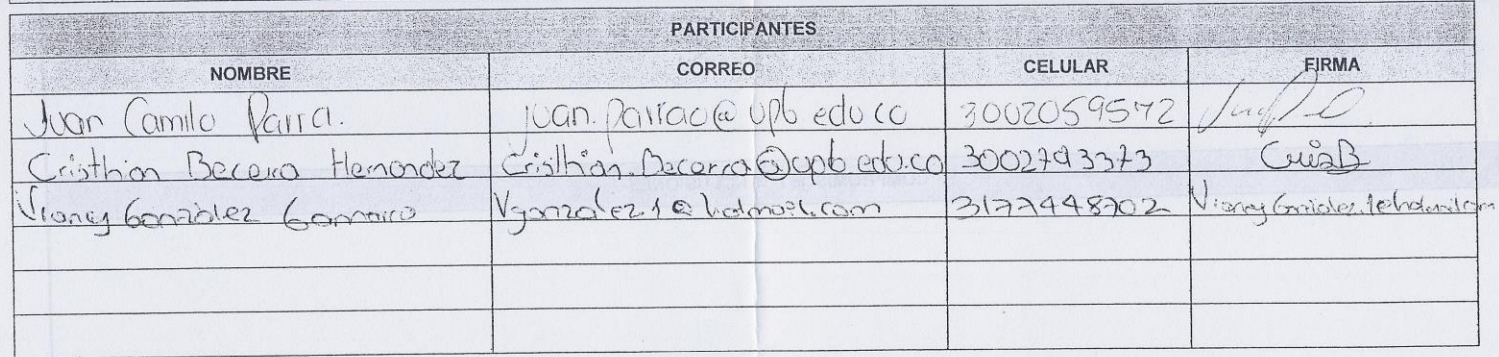 PARTICIPANTES
NOMBRE CORREO CELULAR FIRMA
Juan Camilo Parra. juan.parrac@upb.edu.co 3002059572
Cristhian Becerra Hernandez Cristhian.Becerra@upb.edu.co 3002793373 CrisB
Vianey González Vgonzalez1@hotmail.com 3177448702